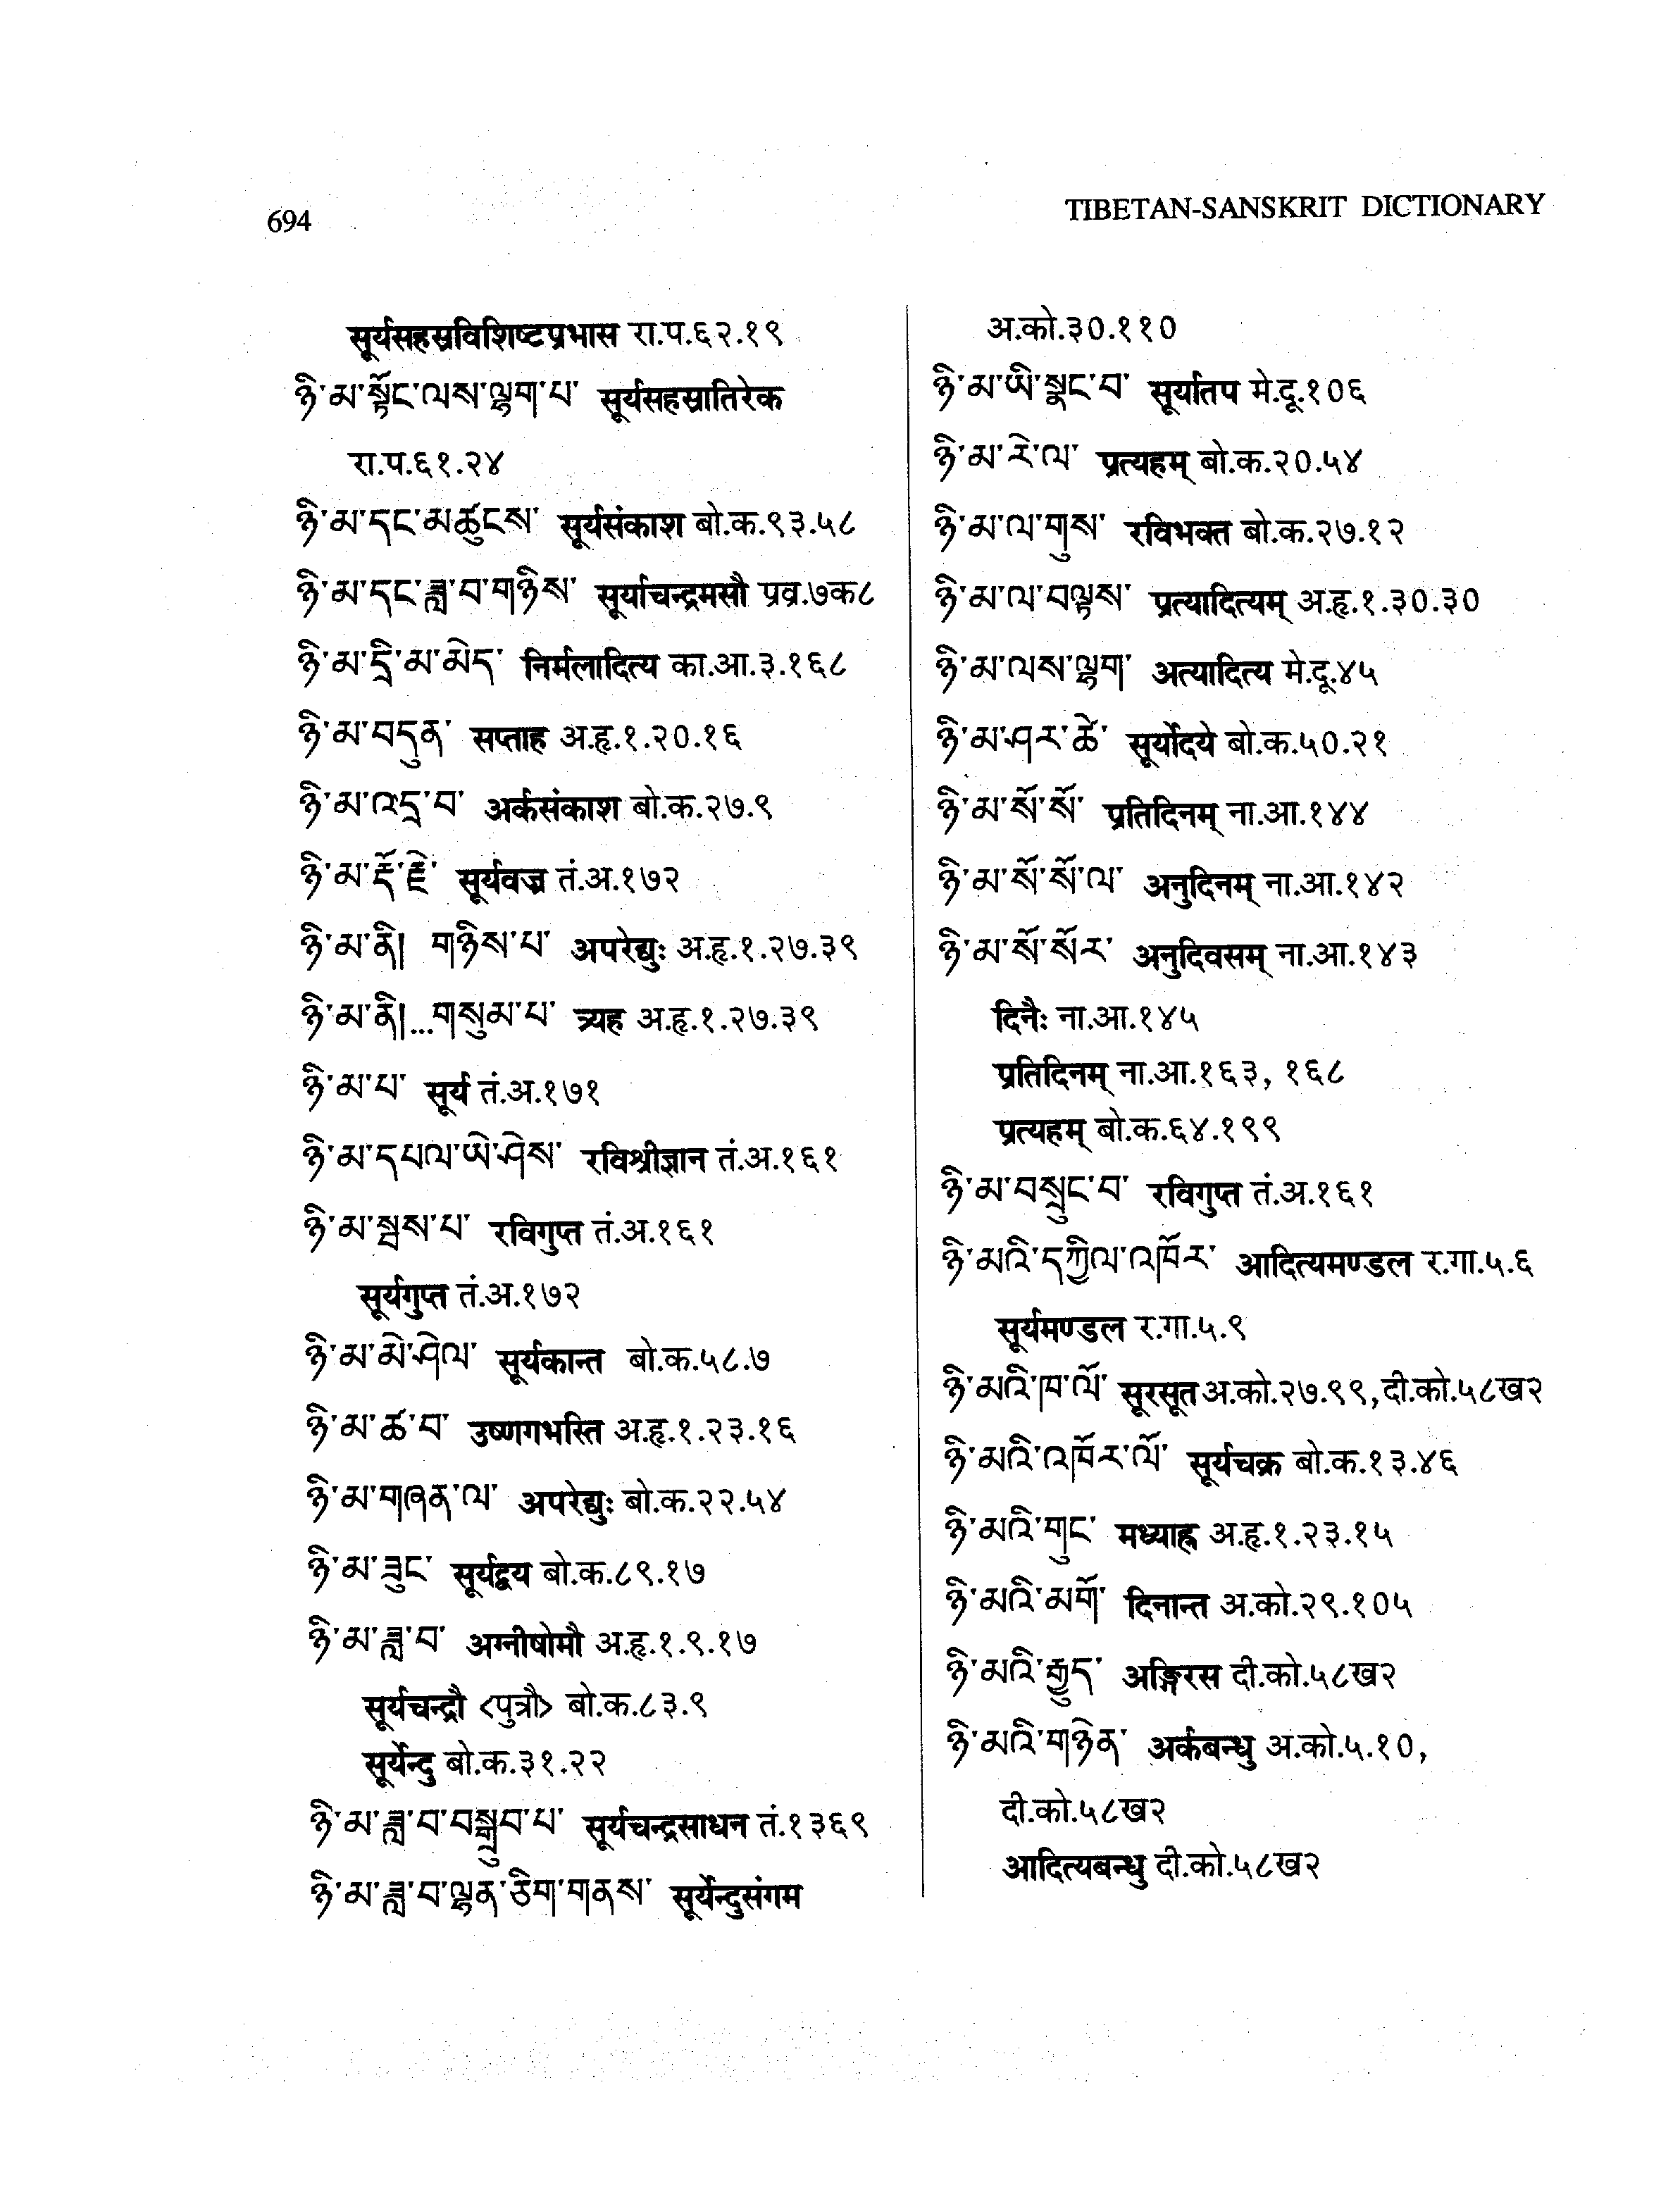 694
TIBETAN-SANSKRIT DICTIONARY
सूर्यसहस्रविशिष्टप्रभास रा.प.६२.१९
ཉི་མ་སྟོང་ལས་ལྷག་པ་ सूर्यसहस्रातिरेक
रा.प.६१.२४
ཉི་མ་དང་མཚུངས་ सूर्यसंकाश बो.क.९३.५८
ཉི་མ་དང་ཟླ་བ་གཉིས་ सूर्याचन्द्रमसौ प्रव्र.७क८
ཉི་མ་དྲི་མ་མེད་ निर्मलादित्य का.आ.३.१६८
ཉི་མ་བདུན་ सप्ताह अ.हृ.१.२०.१६
ཉི་མ་འདྲ་བ་ अर्कसंकाश बो.क.२७.९
ཉི་མ་རྡོ་རྗེ་ सूर्यवज्र तं.अ.१७२
ཉི་མ་ནི། གཉིས་པ་ अपरेद्युः अ.हृ.१.२७.३९
ཉི་མ་ནི།...གསུམ་པ་ त्र्यह अ.हृ.१.२७.३९
ཉི་མ་པ་ सूर्य तं.अ.१७१
ཉི་མ་དཔལ་ཡེ་ཤེས་ रविश्रीज्ञान तं.अ.१६१
ཉི་མ་སྦས་པ་ रविगुप्त तं.अ.१६१
सूर्यगुप्त तं.अ.१७२
ཉི་མ་མེ་ཤེལ་ सूर्यकान्त बो.क.५८.७
ཉི་མ་ཚ་བ་ उष्णगभस्ति अ.हृ.१.२३.१६
ཉི་མ་གཞན་ལ་ अपरेद्युः बो.क.२२.५४
ཉི་མ་ཟུང་ सूर्यद्वय बो.क.८९.१७
ཉི་མ་ཟླ་བ་ अग्नीषोमौ अ.हृ.१.९.१७
सूर्यचन्द्रौ <पुत्रौ> बो.क.८३.९
सूर्येन्दु बो.क.३१.२२
ཉི་མ་ཟླ་བ་བསྒྲུབ་པ་ सूर्यचन्द्रसाधन तं.१३६९
ཉི་མ་ཟླ་བ་ལྷན་ཅིག་གནས་ सूर्येन्दुसंगम
अ.को.३०.११०
ཉི་མ་ཡི་སྣང་བ་ सूर्यातप मे.दू.१०६
ཉི་མ་རེ་ལ་ प्रत्यहम् बो.क.२०.५४
ཉི་མ་ལ་གུས་ रविभक्त बो.क.२७.१२
ཉི་མ་ལ་བལྟས་ प्रत्यादित्यम् अ.हृ.१.३०.३०
ཉི་མ་ལས་ལྷག་ अत्यादित्य मे.दू.४५
ཉི་མ་ཤར་ཚེ་ सूर्योदये बो.क.५०.२१
ཉི་མ་སོ་སོ་ प्रतिदिनम् ना.आ.१४४
ཉི་མ་སོ་སོ་ལ་ अनुदिनम् ना.आ.१४२
ཉི་མ་སོ་སོར་ अनुदिवसम् ना.आ.१४३
दिनैः ना.आ.१४५
प्रतिदिनम् ना.आ.१६३, १६८
प्रत्यहम् बो.क.६४.१९९
ཉི་མ་བསྲུང་བ་ रविगुप्त तं.अ.१६१
ཉི་མའི་དཀྱིལ་འཁོར་ आदित्यमण्डल र.गा.५.६
सूर्यमण्डल र.गा.५.९
ཉི་མའི་ཁ་ལོ་ सूरसूत अ.को.२७.९९,दी.को.५८ख२
ཉི་མའི་འཁོར་ལོ་ सूर्यचक्र बो.क.१३.४६
ཉི་མའི་གུང་ मध्याह्न अ.हृ.१.२३.१५
ཉི་མའི་མགོ་ दिनान्त अ.को.२९.१०५
ཉི་མའི་རྒྱུད་ अङ्गिरस दी.को.५८ख२
ཉི་མའི་གཉེན་ अर्कबन्धु अ.को.५.१०,
दी.को.५८ख२
आदित्यबन्धु दी.को.५८ख२